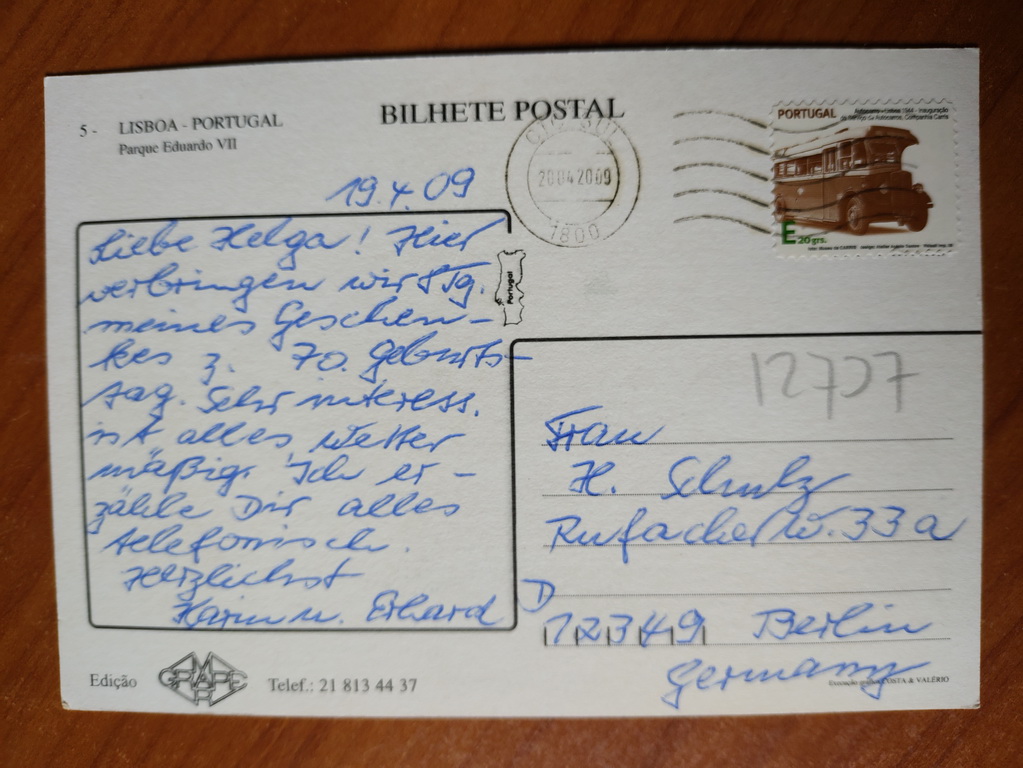 5 - LISBOA - PORTUGAL
Parque Eduardo VII
BILHETE POSTAL
20042009
1800
PORTUGAL
E 20 grs.
19.4.09
Liebe Helga! Hier
verbringen wir 8 Tg.
meines Geschen-
kes z. 70. Geburts-
tag. Sehr interess.
ist alles Wetter
mäßig. Ich er-
zähle Dir alles
telefonisch.
Herzlichst
Karin u. Erhard
Portugal
12707
Frau
H. Schulz
Rufacher W. 33a
D
12349 Berlin
Germany
Edição GRAPE MAR Telef.: 21 813 44 37
COSTA & VALÉRIO